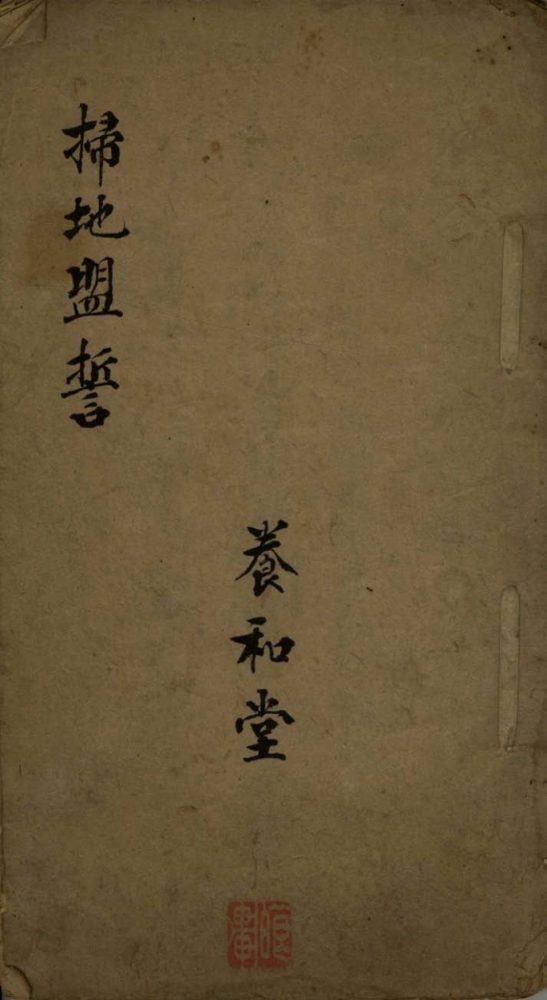 掃地盟誓
養和堂